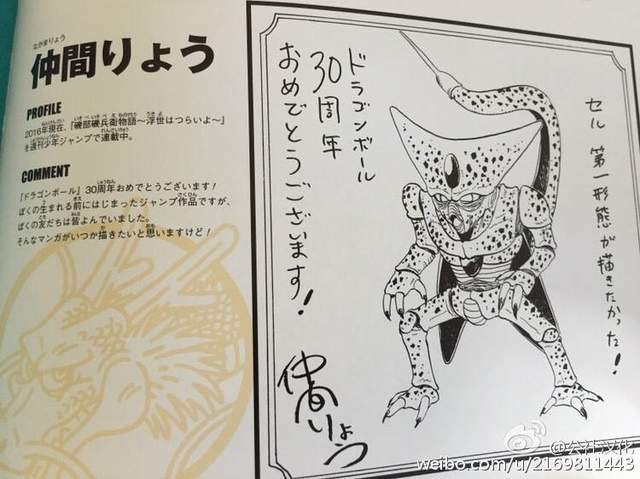 なかまりょう
仲間りょう
PROFILE
2016年現在、『磯部磯兵衛物語〜浮世はつらいよ〜』
を週刊少年ジャンプで連載中。
COMMENT
『ドラゴンボール』30周年おめでとうございます!
ぼくの生まれる前にはじまったジャンプ作品ですが、
ぼくの友だちは皆よんでいました。
そんなマンガがいつか描きたいと思いますけど!
ドラゴンボール
30周年
おめでとうございます!
セル 第一形態が描きたかった!
仲間りょう
@公社汉化
weibo.com/u/2169811443